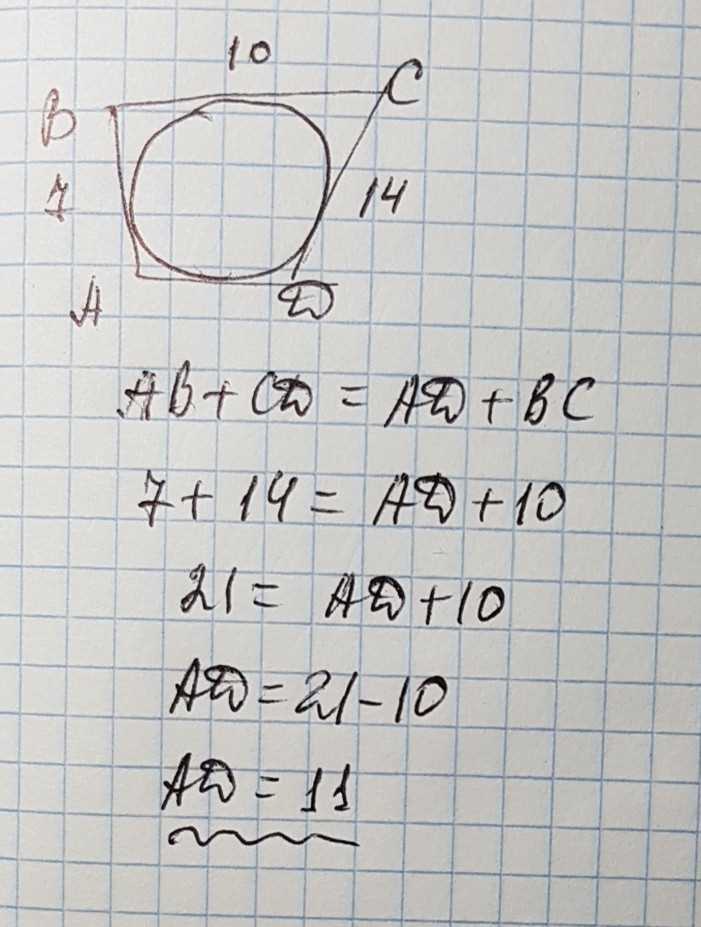 10
B
C
7
14
A
D
AB + CD = AD + BC
7 + 14 = AD + 10
21 = AD + 10
AD = 21 - 10
AD = 11